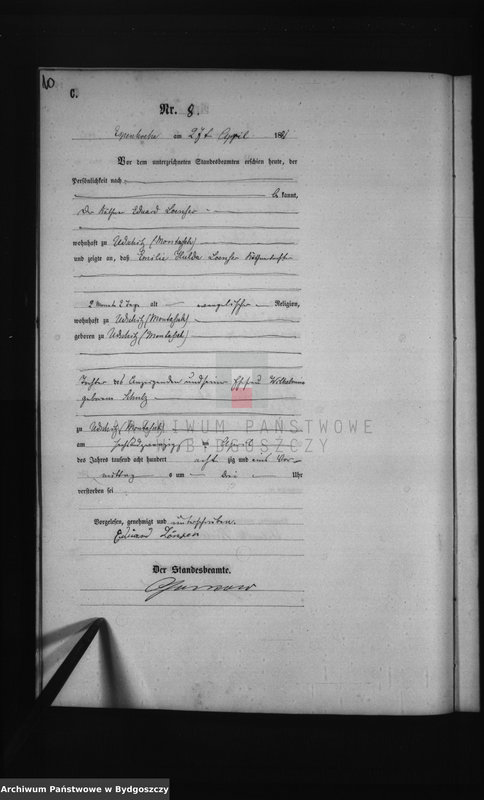 10
C.
Nr. 8.
am 27t April 1881
Vor dem unterzeichneten Standesbeamten erschien heute, der
Persönlichkeit nach
be kannt,
Der Käthner Eduard Loenser
wohnhaft zu Udschitz (Montashek)
und zeigte an, daß Emilie Hulda Loenser Käthnertochter
2 Monate 2 Tage alt evangelischer Religion,
wohnhaft zu Udschitz (Montashek)
geboren zu Udschitz (Montashek)
Tochter des Anzeigenden und seiner Ehefrau Wilhelmine
geborene Schulz
zu Udschitz (Montashek)
am sechsundzwanzigsten April
des Jahres tausend acht hundert achtzig und eins Vor-
mittag s um drei Uhr
verstorben sei
Vorgelesen, genehmigt und unterschrieben.
Eduard Lönser
Der Standesbeamte.
ARCHIWUM PAŃSTWOWE
W BYDGOSZCZY
Archiwum Państwowe w Bydgoszczy